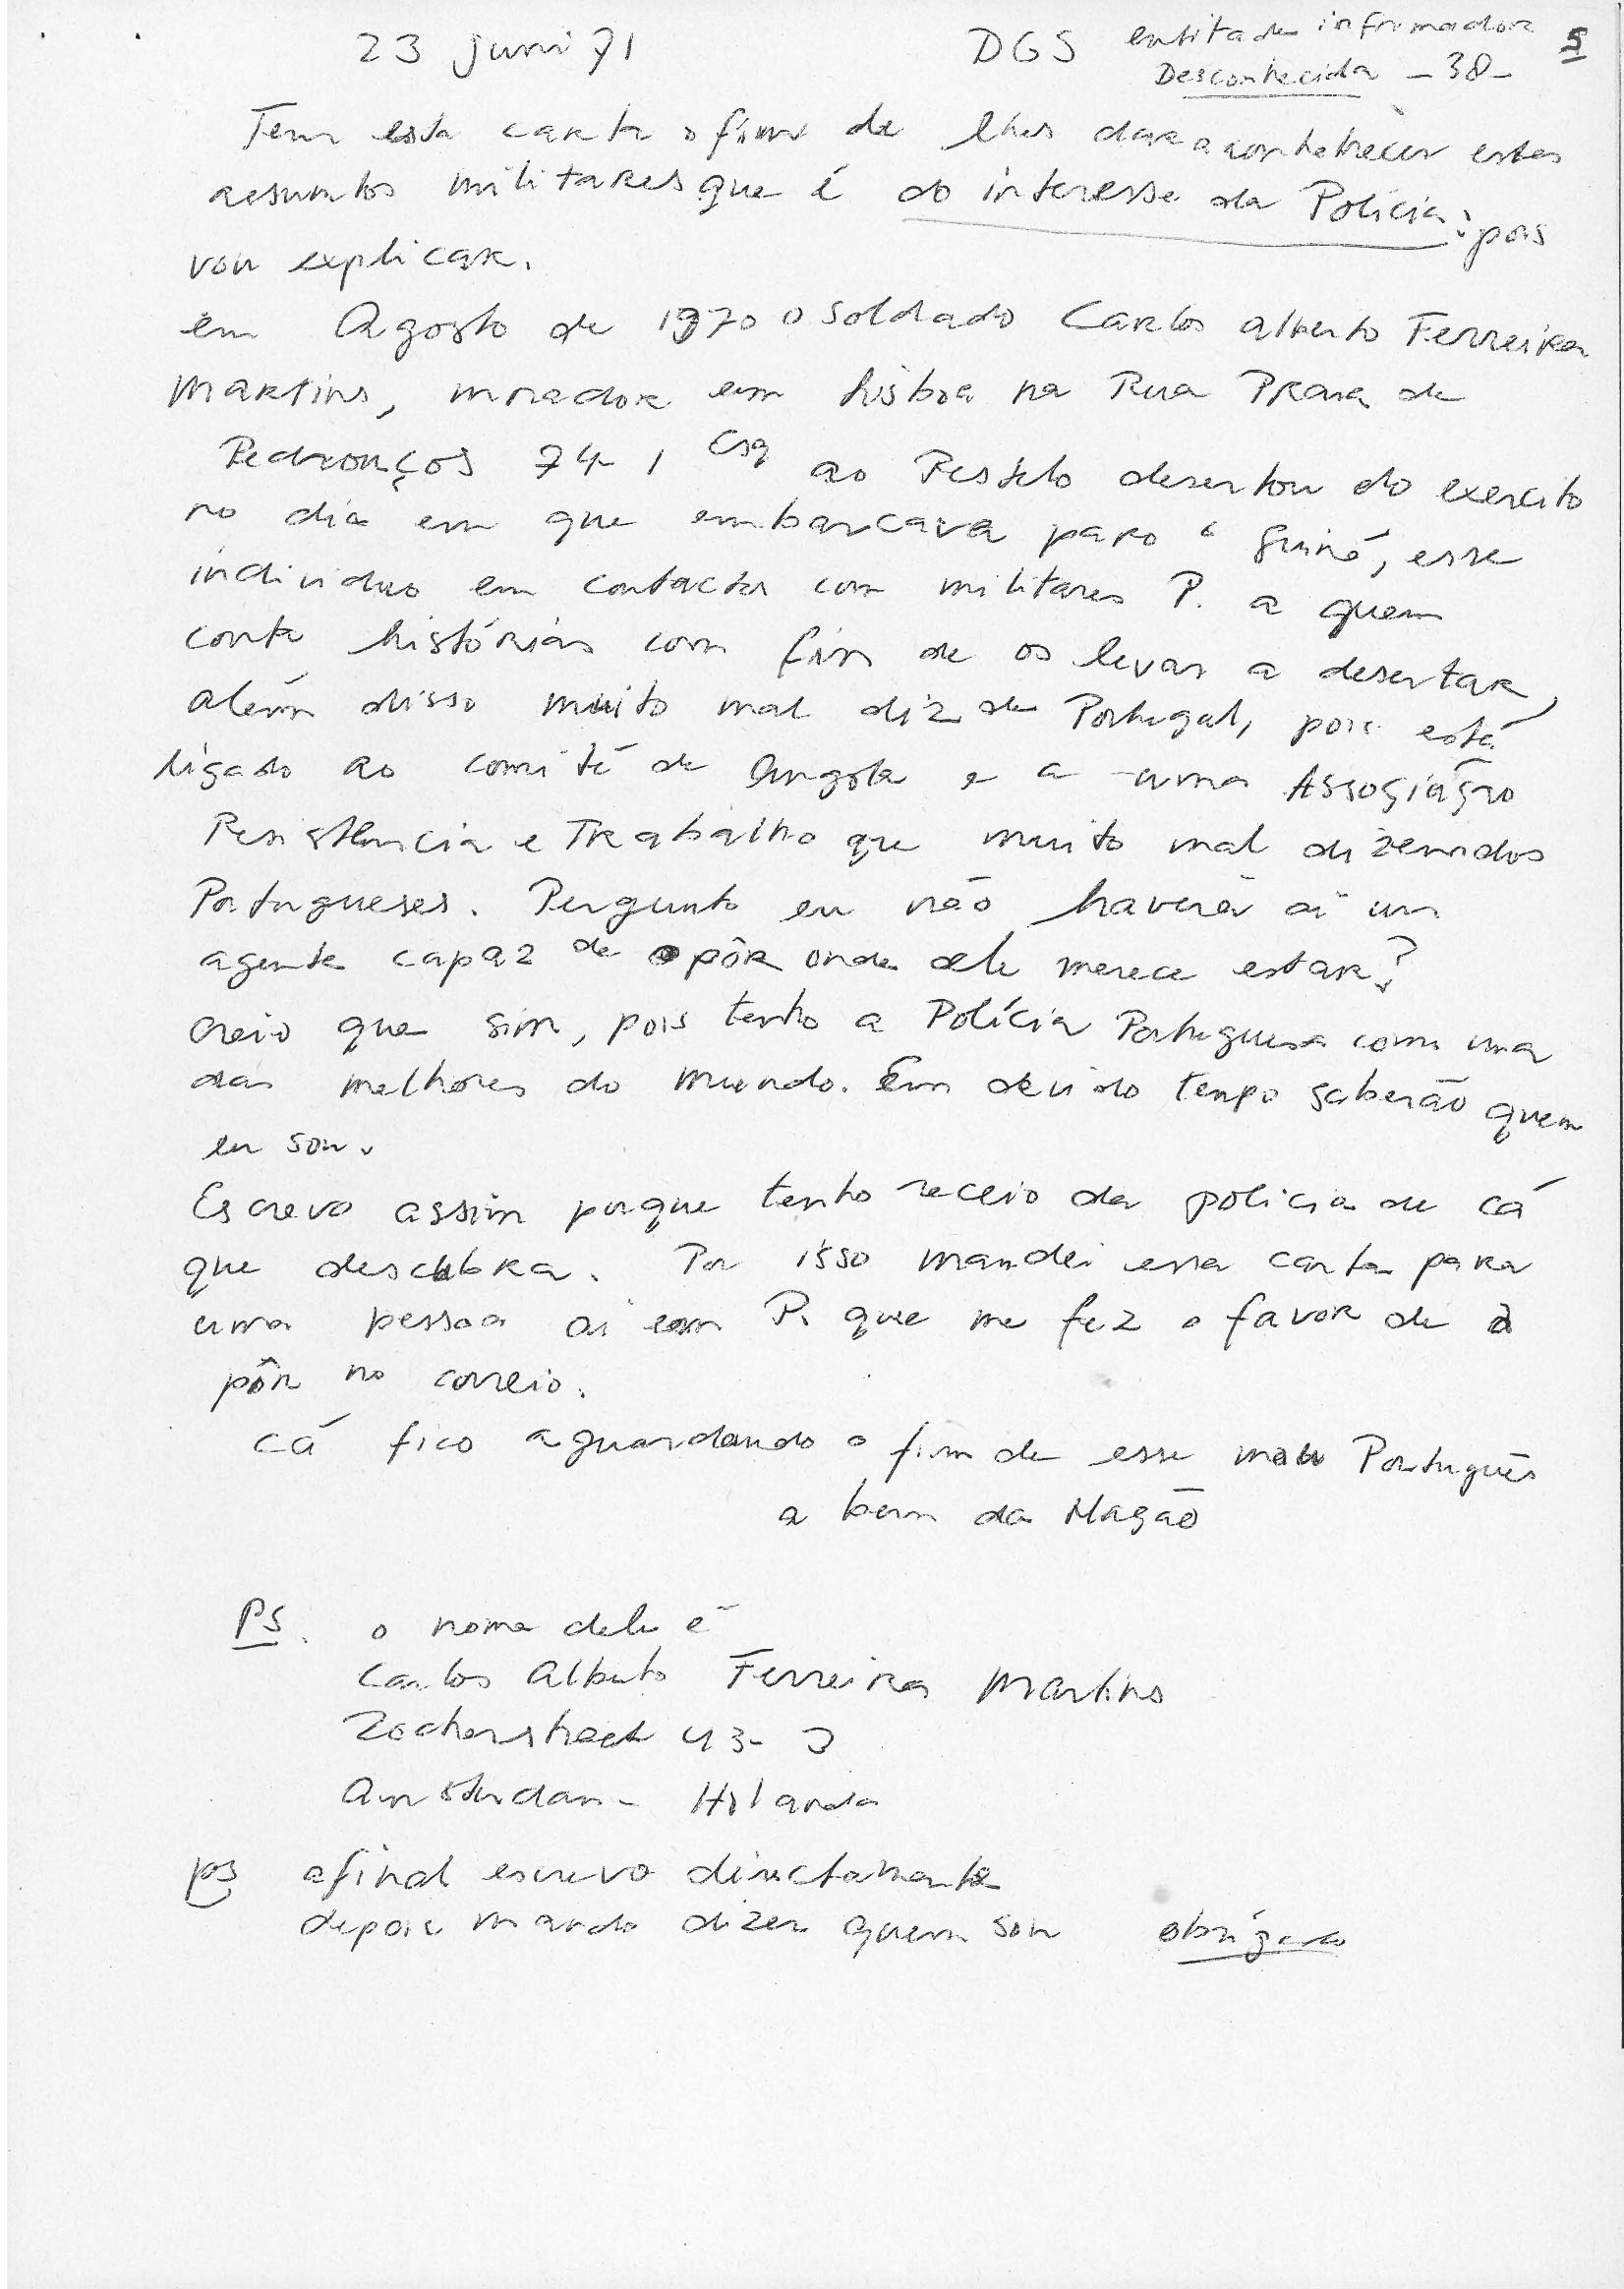 23 Juni 71 DGS entitade informadora 5
Desconhecida - 38 -
Tem esta carta o fim de lhes dar a conhecer estes
assuntos militares que é do interesse da Polícia: pois
vou explicar.
em Agosto de 1970 o soldado Carlos Alberto Ferreira
Martins, morador em Lisboa na Rua Praia de
Pedrouços 74- 1 Esq ao Restelo desertou do exercito
no dia em que embarcava para a Guiné, esse
individuo em contacto com militares P. a quem
conta histórias com fim de os levar a desertar,
além disso muito mal diz de Portugal, pois está
ligado ao comité de Angola e a uma Associação
Resistência e Trabalho que muito mal dizem dos
Portugueses. Pergunto eu não haverá aí um
agente capaz de o pôr onde ele merece estar?
creio que sim, pois tenho a Polícia Portuguesa como uma
das melhores do mundo. Em devido tempo saberão quem
eu sou.
Escrevo assim porque tenho receio da policia de cá
que descubra. Por isso mandei essa carta para
uma pessoa aí em P. que me fez o favor de a
pôr no correio.
cá fico aguardando o fim de esse mau Português
a bem da Nação
PS. o nome dele é
Carlos Alberto Ferreira Martins
Zocherstraat 43- 3
Amsterdam - Holanda
ps afinal escrevo directamente
depois mando dizer quem sou obrigado